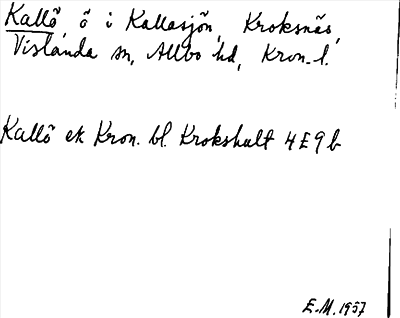 Kallö, ö i Kallasjön, Kroksnäs,
Vislanda sn, Allbo hd, Kron. l.
Kallö ek Kron. bl. Krokshult 4E9b
E.M. 1957